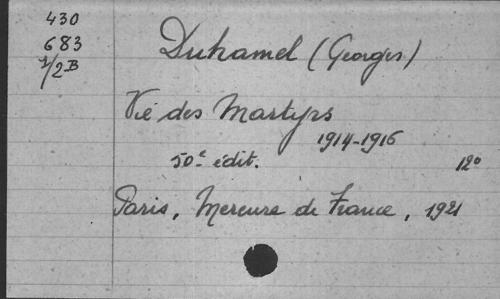 430
683
1/2 B
Duhamel (Georges)
Vie des Martyrs
1914-1916
50e édit. 12°
Paris, Mercure de France, 1921